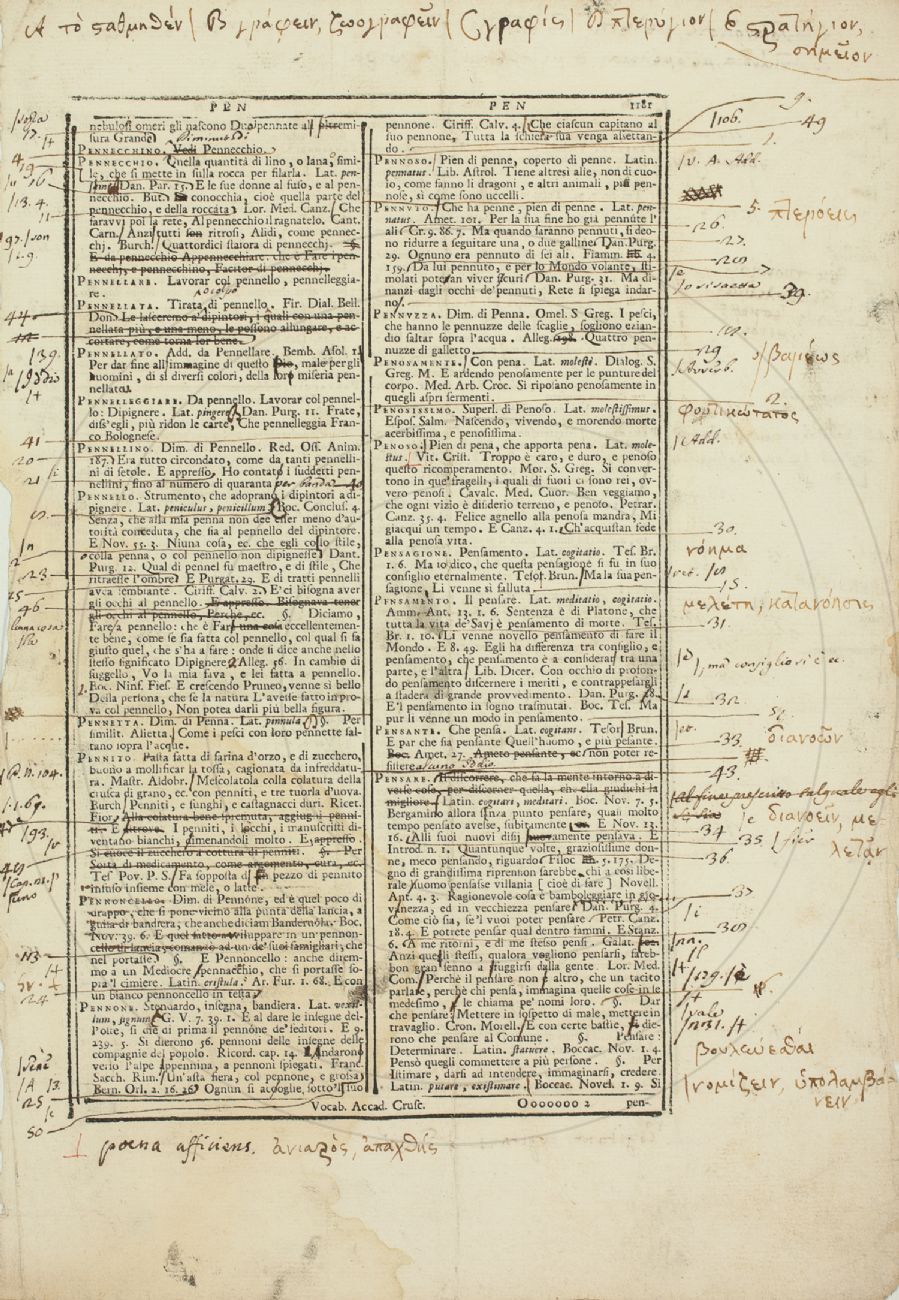 A τὸ ϛαθμηθέν | B γράφειν, ζωογραφεῖν | C γραφίς | D πτερύγιον | E
σημεῖον
PEN PEN 1181
nebulosi omeri gli nascono Duo pennate
sura Grande
PENNECCHINO. Vedi Pennecchio.
PENNECCHIO. Quella quantità di lino, o lana, simi-
le, che si mette in sulla rocca per filarla. Lat. pen-
Dan. Par. 15. E le sue donne al fuso, e al pen-
necchio. But. conocchia, cioè quella parte del
pennecchio, e della roccata. Lor. Med. Canz. Che
faravvi poi la rete, Al pennecchio l'ragnatelo. Cant.
Carn. Anzi tutti son ritrosi, Alidi, come pennec-
chj. Burch. Quattordici staiora di pennecchj. §.
E da pennecchio Appennecchiare. che è Fare i pen-
necchj, e pennecchino, Facitor di pennecchj.
PENNELLARE. Lavorar col pennello, pennelleggia-
re.
PENNELLATA. Tirata di pennello. Fir. Dial. Bell.
Don. Le lasceremo a' dipintori, i quali con una pen-
nellata più, e una meno, le possono allungare, e ac-
cortare, come torna lor bene.
PENNELLATO. Add. da Pennellare. Bemb. Asol. 1.
Per dar fine all'immagine di questo Dio, male per gli
huomini, di sì diversi colori, della loro miseria pen-
nellato.
PENNELLEGGIARE. Da pennello. Lavorar col pennel-
lo: Dipignere. Lat. pingere. Dan. Purg. 11. Frate,
diss'egli, più ridon le carte, Che pennelleggia Fran-
co Bolognese.
PENNELLINO. Dim. di Pennello. Red. Oss. Anim.
187. Era tutto circondato, come da tanti pennelli-
ni di setole. E appresso. Ho contato i suddetti pen-
nellini, fino al numero di quaranta per banda
PENNELLO. Strumento, che adoprano i dipintori a di-
pignere. Lat. peniculus, penicillum. Boc. Conclus. 4.
Senza, che alla mia penna non dee esser meno d'au-
torità conceduta, che sia al pennello del dipintore.
E Nov. 55. 3. Niuna cosa, ec. che egli collo stile,
colla penna, o col pennello non dipignesse. Dant.
Purg. 12. Qual di pennel fu maestro, e di stile, Che
ritraesse l'ombre. E Purgat. 29. E di tratti pennelli
avea sembiante. Ciriff. Calv. 2. E' ci bisogna aver
gli occhi al pennello. E appresso. Bisognava tener
gli occhi al pennello, Perchè, ec. §. Diciamo,
Fare a pennello: che è Far una cosa eccellentemen-
te bene, come se sia fatta col pennello, col qual si fa
giusto quel, che s'ha a fare: onde si dice anche nello
stesso significato Dipignere. Alleg. 56. In cambio di
suggello, Vo la mia fava, e lei fatta a pennello.
Boc. Ninf. Fies. E crescendo Pruneo, venne sì bello
Della persona, che se la natura L'avesse fatto in pro-
va col pennello, Non potea darli più bella figura.
PENNETTA. Dim. di Penna. Lat. pennula. §. Per
similit. Alietta. Come i pesci con loro pennette sal-
tano sopra l'acque.
PENNITO. Pasta fatta di farina d'orzo, e di zucchero,
buono a mollificar la tossa, cagionata da infreddatu-
ra. Mastr. Aldobr. Mescolatola colla colatura della
crusca di grano, ec. con penniti, e tre tuorla d'uova.
Burch. Penniti, e funghi, e castagnacci duri. Ricet.
Fior. Alla colatura bene spremuta, aggiugni penni-
ti. E altrove. I penniti, i locchi, i manuscristi di-
ventano bianchi, dimenandosi molto. E appresso
Si cuoce il zucchero a cottura di penniti. §. Per
Sorta di medicamento, come argomento, cura, ec.
Tes. Pov. P. S. Fa sopposta di un pezzo di pennito
infuso insieme con mele, o latte.
PENNONCELLO. Dim. di Pennone, ed è quel poco di
drappo, che si pone vicino alla punta della lancia, a
guisa di bandiera, che anche diciam Banderuola. Boc.
Nov. 39. 6. E quel fatto avviluppare in un pennon-
cello di lancia, comandò ad un de' suoi famigliari, che
nel portasse. §. E Pennoncello: anche direm-
mo a un Mediocre pennacchio, che si portasse so-
pra 'l cimiere. Latin. cristula. Ar. Fur. 1. 68. E con
un bianco pennoncello in testa.
PENNONE. Stendardo, insegna, bandiera. Lat. vexil-
lum, signum. G. V. 7. 39. 1. E al dare le insegne del-
l'oste, si diè di prima il pennone de' feditori. E 9.
239. 5. Si dierono 56. pennoni delle insegne delle
compagnie del popolo. Ricord. cap. 14. Andarono
verso l'alpe Appennina, a pennoni spiegati. Franc.
Sacch. Rim. Un'asta fiera, col pennone, e grossa
Bern. Orl. 2. 16. 26. Ognun si accoglie sotto 'l suo
pennone. Ciriff. Calv. 4. Che ciascun capitano al
suo pennone, Tutta la schiera sua venga assettan-
do.
PENNOSO. Pien di penne, coperto di penne. Latin.
pennatus. Lib. Astrol. Tiene altresì alie, non di cuo-
io, come fanno li dragoni, e altri animali, più pen-
nose, sì come sono uccelli.
PENNUTO. Che ha penne, pien di penne. Lat. pen-
natus. Amet. 101. Per la sua fine ho già pennute l'
ali. Gr. 9. 86. 7. Ma quando saranno pennuti, si deo-
no ridurre a seguitare una, o due galline. Dan. Purg.
29. Ognuno era pennuto di sei ali. Fiamm. 4.
159. Da lui pennuto, e per lo Mondo volante, sti-
molati potean viver sicuri. Dan. Purg. 31. Ma di-
nanzi dagli occhi de' pennuti, Rete si spiega indar-
no.
PENNUZZA. Dim. di Penna. Omel. S. Greg. I pesci,
che hanno le pennuzze delle scaglie, sogliono ezian-
dio saltar sopra l'acqua. Alleg. 198. Quattro pen-
nuzze di galletto.
PENOSAMENTE. Con pena. Lat. molestè. Dialog. S.
Greg. M. E ardendo penosamente per le punture del
corpo. Med. Arb. Croc. Si riposano penosamente in
quegli aspri sermenti.
PENOSISSIMO. Superl. di Penoso. Lat. molestissimus.
Espos. Salm. Nascendo, vivendo, e morendo morte
acerbissima, e penosissima.
PENOSO. Pien di pena, che apporta pena. Lat. mole-
stus. Vit. Crist. Troppo è caro, e duro, e penoso
questo ricomperamento. Mor. S. Greg. Si conver-
tono in que' fragelli, i quali di fuori ci sono rei, ov-
vero penosi. Cavalc. Med. Cuor. Ben veggiamo,
che ogni vizio è disiderio terreno, e penoso. Petrar.
Canz. 35. 4. Felice agnello alla penosa mandra, Mi
giacqui un tempo. E Canz. 4. 1. Ch'acquistan fede
alla penosa vita.
PENSAGIONE. Pensamento. Lat. cogitatio. Tes. Br.
1. 6. Ma io dico, che questa pensagione si fu in suo
consiglio eternalmente. Tesor. Brun. Ma la sua pen-
sagione, Li venne sì falluta.
PENSAMENTO. Il pensare. Lat. meditatio, cogitatio.
Amm. Ant. 13. 1. 6. Sentenza è di Platone, che
tutta la vita de' Savj è pensamento di morte. Tes.
Br. 1. 10. Li venne novello pensamento di fare il
Mondo. E 8. 49. Egli ha differenza tra consiglio, e
pensamento, che pensamento è a considerar tra una
parte, e l'altra. Lib. Dicer. Con occhio di profon-
do pensamento discernere i meriti, e contrappesargli
a stadera di grande provvedimento. Dan. Purg. 18.
E 'l pensamento in sogno trasmutai. Boc. Tes. Ma
pur li venne un modo in pensamento.
PENSANTE. Che pensa. Lat. cogitans. Tesor Brun.
E par che sia pensante Quell'huomo, e più pesante.
Boc. Amet. 27. Ameto pensante, ec. non poter re-
sistere
PENSARE. Il discorrere, che fa la mente intorno a di-
verse cose, per discerner quella, che ella giudichi la
migliore. Latin. cogitare, meditari. Boc. Nov. 7. 5.
Bergamino allora senza punto pensare, quasi molto
tempo pensato avesse, subitamente E Nov. 13.
16. Alli suoi nuovi disj pensava. E
Introd. n. 1. Quantunque volte, graziosissime don-
ne, meco pensando, riguardo. Filoc. 5. 175. De-
gno di grandissima riprension sarebbe, chi a così libe-
rale huomo pensasse villania [ cioè di fare ] Novell.
Ant. 4. 3. Ragionevole cosa è bamboleggiare in gio-
vanezza, ed in vecchiezza pensare. Dan. Purg. 4.
Come ciò sia, se 'l vuoi poter pensare. Petr. Canz.
18. 4. E potrete pensar qual dentro fammi. E Stanz.
6. A me ritorni, e di me stesso pensi. Galat.
Anzi quegli stessi, qualora vogliono pensarsi, sareb-
bon gran senno a fuggirsi dalla gente. Lor. Med.
Com. Perchè il pensare non è altro, che un tacito
parlare, perchè chi pensa, immagina quelle cose in se
medesimo, le chiama pe' nomi loro. §. Dar
che pensare: Mettere in sospetto di male, mettere in
travaglio. Cron. Morell. E con certe bastie, die-
rono che pensare al Comune. §. Pensare:
Determinare. Latin. statuere. Boccac. Nov. 1. 4.
Pensò quegli commettere a più persone. §. Per
Istimare, darsi ad intendere, immaginarsi, credere.
Latin. putare, existimare. Boccac. Novel. 1. 9. Si
Vocab. Accad. Crusc. Ooooooo 2 pen-
49
26.
27.
πτερόεις
29
βαρέως
φορτικώτατος
30.
νόημα
μελέτη, κατανόησις
31.
32
33
διανοῶν
43.
διανοεῖν, με
λετᾶν
34
35
36.
37
βουλεύεσθαι
νομίζειν, ὑπολαμβά-
νειν
44
139.
41
20
21
23
25
46
193.
113
24
25
50
poena afficiens. ἀνιαρός, ἀπαχθής